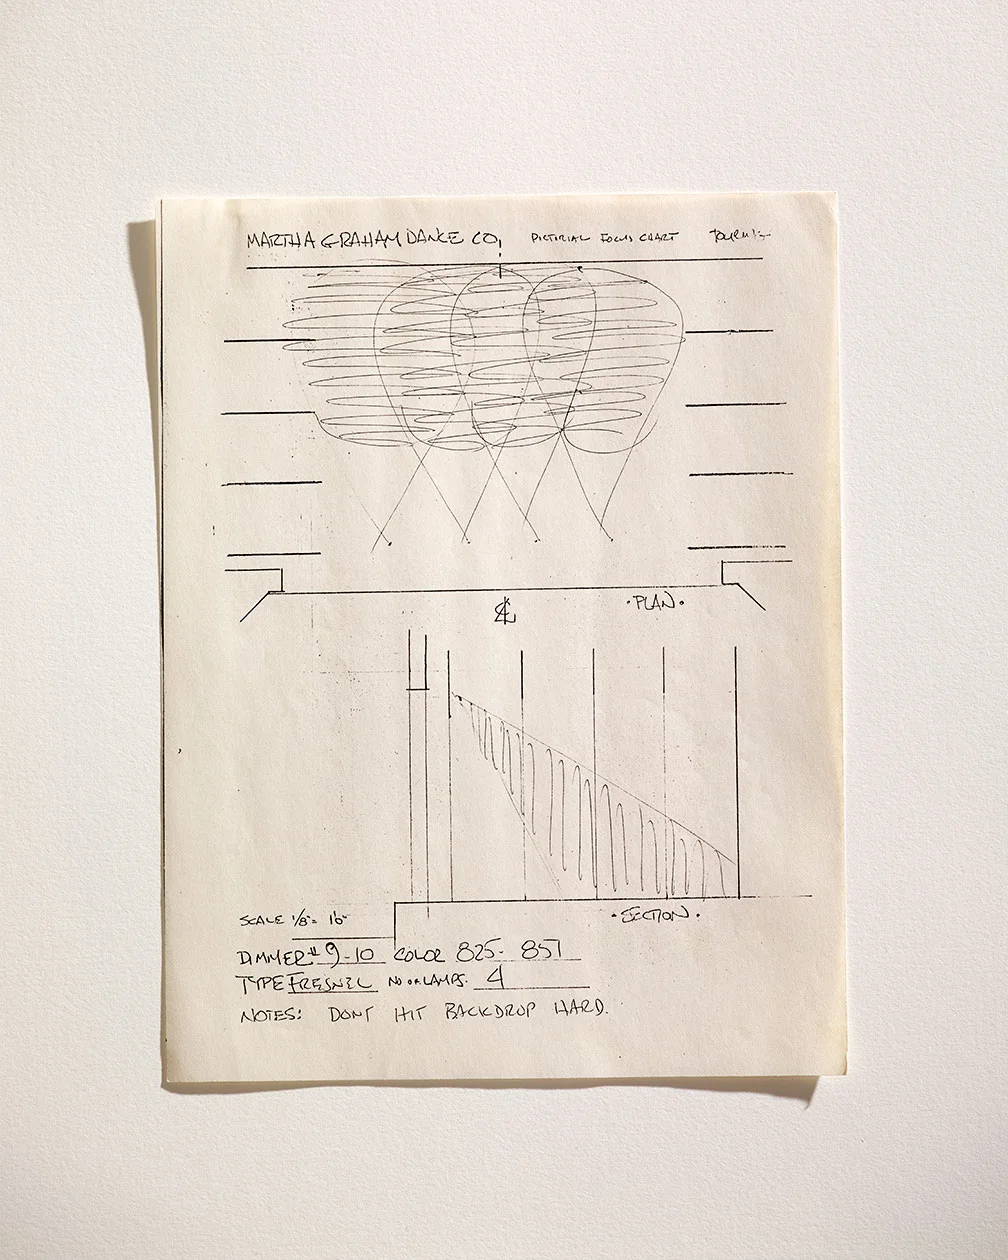 MARTHA GRAHAM DANCE CO, PICTIRIAL FOCUS CHART
℄
·PLAN·
·SECTION·
SCALE 1/8"= 1'0"
DIMMER# 9-10 COLOR 825- 857
TYPE FRESNEL NO OF LAMPS. 4
NOTES: DONT HIT BACKDROP HARD.